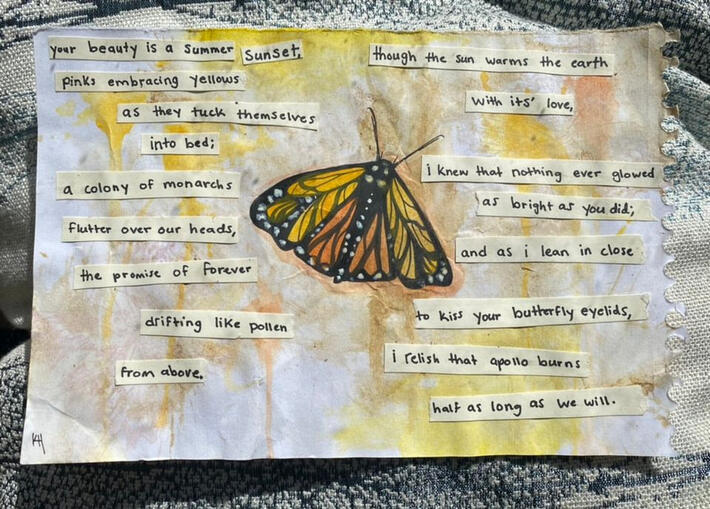 your beauty is a summer sunset,
pinks embracing yellows
as they tuck themselves
into bed;
a colony of monarchs
flutter over our heads,
the promise of forever
drifting like pollen
from above.
though the sun warms the earth
with its' love,
i knew that nothing ever glowed
as bright as you did;
and as i lean in close
to kiss your butterfly eyelids,
i relish that apollo burns
half as long as we will.
KH